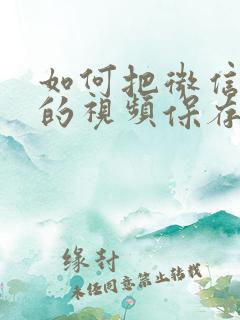 如何把微信
的視頻保存
缘封
未经同意禁止转载